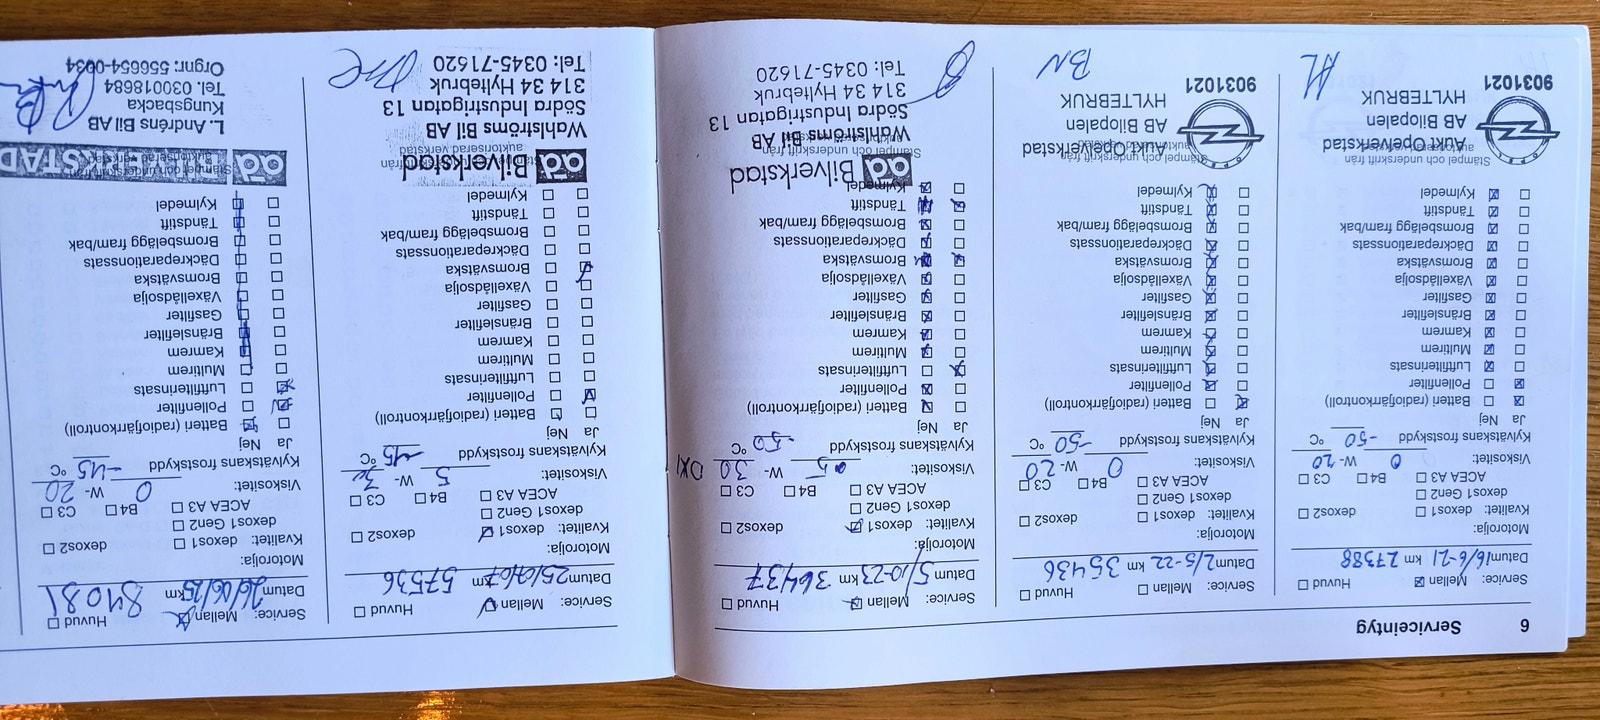 6 Serviceintyg
Service: Mellan Huvud
Datum 16/6-21 km 27388
Motorolja:
Kvalitet: dexos1 dexos2
dexos1 Gen2
ACEA A3 B4 C3
Viskositet: 0 W- 20
Kylvätskans frostskydd -50 °C
Ja Nej
Batteri (radiofjärrkontroll)
Pollenfilter
Luftfilterinsats
Multirem
Kamrem
Bränslefilter
Gasfilter
Växellådsolja
Bromsvätska
Däckreparationssats
Bromsbelägg fram/bak
Tändstift
Kylmedel
Stämpel och underskrift från
Aukt Opelverkstad
AB Bilopalen
HYLTEBRUK
9031021
OPEL
Service: Mellan Huvud
Datum 2/5-22 km 35436
Motorolja:
Kvalitet: dexos1 dexos2
dexos1 Gen2
ACEA A3 B4 C3
Viskositet: 0 W- 20
Kylvätskans frostskydd -50 °C
Ja Nej
Batteri (radiofjärrkontroll)
Pollenfilter
Luftfilterinsats
Multirem
Kamrem
Bränslefilter
Gasfilter
Växellådsolja
Bromsvätska
Däckreparationssats
Bromsbelägg fram/bak
Tändstift
Kylmedel
Stämpel och underskrift från
Aukt Opelverkstad
AB Bilopalen
HYLTEBRUK
9031021
OPEL
BN
Service: Mellan Huvud
Datum 5/10-23 km 36437
Motorolja:
Kvalitet: dexos1 dexos2
dexos1 Gen2
ACEA A3 B4 C3
Viskositet: 05 W- 30
Kylvätskans frostskydd -50 °C
Ja Nej
Batteri (radiofjärrkontroll)
Pollenfilter
Luftfilterinsats
Multirem
Kamrem
Bränslefilter
Gasfilter
Växellådsolja
Bromsvätska
Däckreparationssats
Bromsbelägg fram/bak
Tändstift
Kylmedel
Stämpel och underskrift från
ad Bilverkstad
Wahlströms Bil AB
Södra Industrigatan 13
314 34 Hyltebruk
Tel: 0345-71620
Service: Mellan Huvud
Datum km 57536
Motorolja:
Kvalitet: dexos1 dexos2
dexos1 Gen2
ACEA A3 B4 C3
Viskositet: 5 W- 30
Kylvätskans frostskydd -45 °C
Ja Nej
Batteri (radiofjärrkontroll)
Pollenfilter
Luftfilterinsats
Multirem
Kamrem
Bränslefilter
Gasfilter
Växellådsolja
Bromsvätska
Däckreparationssats
Bromsbelägg fram/bak
Tändstift
Kylmedel
Stämpel och underskrift från
auktoriserad verkstad
ad Bilverkstad
Wahlströms Bil AB
Södra Industrigatan 13
314 34 Hyltebruk
Tel: 0345-71620
Service: Mellan Huvud
Datum 26/06/25 km 84081
Motorolja:
Kvalitet: dexos1 dexos2
dexos1 Gen2
ACEA A3 B4 C3
Viskositet: 0 W- 20
Kylvätskans frostskydd -45 °C
Ja Nej
Batteri (radiofjärrkontroll)
Pollenfilter
Luftfilterinsats
Multirem
Kamrem
Bränslefilter
Gasfilter
Växellådsolja
Bromsvätska
Däckreparationssats
Bromsbelägg fram/bak
Tändstift
Kylmedel
Stämpel och underskrift från
auktoriserad verkstad
ad BILVERKSTAD
L. Andréns Bil AB
Kungsbacka
Tel. 030018684
Orgnr: 556654-0934